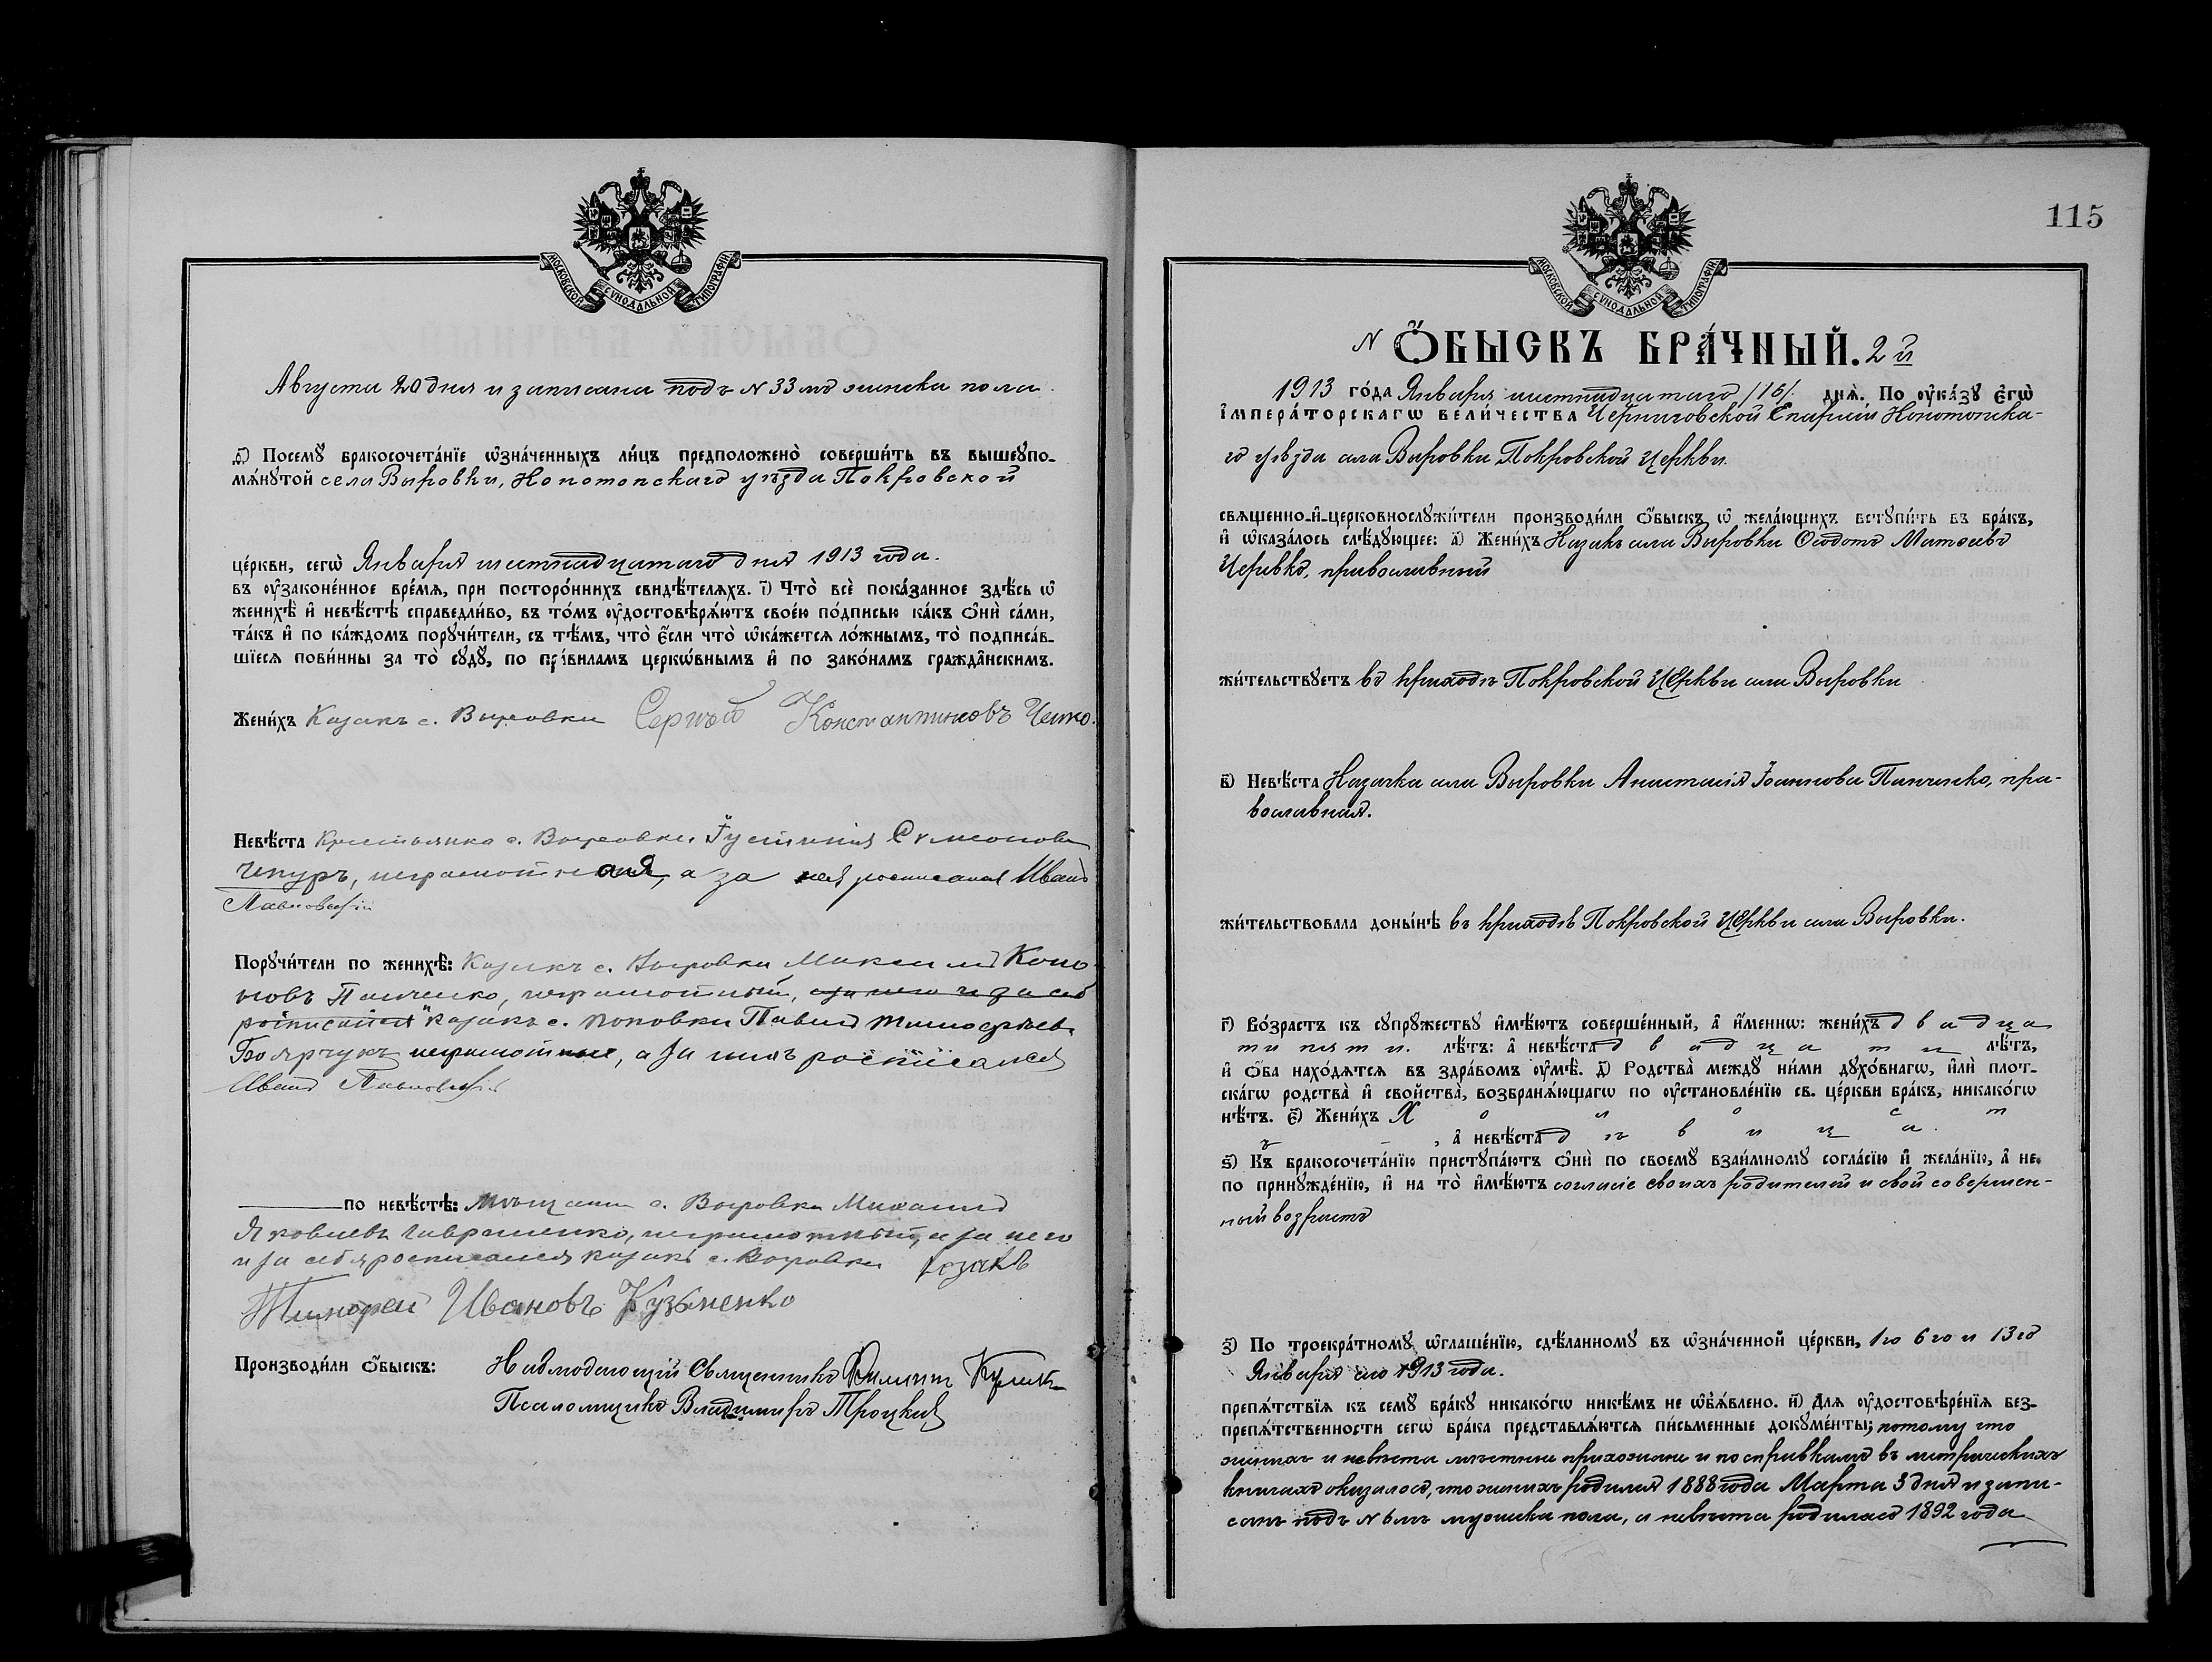 МОСКОВСКОЙ СѴНОДАЛЬНОЙ ТИПОГРАФІИ
Августа 20 дня и записана подъ N 33 мъ женска пола.
д҃) Посемꙋ бракосочета́нїе ѡ҆зна́ченныхъ ли́цъ предположено̀ соверши́ть въ вышеꙋпо-
мѧ́нꙋтой села Выровки, Конотопскаго уѣзда Покровской
це́ркви, сегѡ̀ Января шестнадцатаго дня 1913 года.
въ оу҆зако́нéнное вре́мѧ, при посторо́ннихъ свидѣ́телѧхъ. і҃) Что̀ всѐ пока́занное здѣ́сь ѡ҆
женихѣ̀ и҆ невѣ́стѣ справедли́во, въ то́мъ оу҆достовѣрѧ́ютъ свое́ю по́дписью ка́къ ѻ҆нѝ са́ми,
та́къ и҆ по ка́ждомъ порꙋчи́тели, съ тѣ́мъ, что̀ є҆́сли что̀ ѡ҆ка́жетсѧ ло́жнымъ, то̀ подписа́в-
шїесѧ пови́нны за то̀ сꙋдꙋ̀, по пра́виламъ церко́внымъ и҆ по зако́намъ гражда́нскимъ.
Жени́хъ Казакъ с. Выровки Сергѣй Константиновъ
Невѣ́ста Крестьянка с. Выровки Іустинія Симеонова
Чепуръ, неграмотная, а за нея росписался Иванъ
Порꙋчи́тели по женихѣ̀: Казакъ с. Выровки Максимъ Коно-
новъ Панченко, неграмотный, а за него и за себя
росписался казакъ с. Поповки Павелъ Тимофѣевъ
Боярчукъ неграмотные, а за нихъ росписался
Иванъ
по невѣ́стѣ: Мѣщанин с. Выровки Михаилъ
Яковлевъ Гавриленко, неграмотный, а за него
и за себя росписался казакъ с. Выровки козакъ
Тимофей Ивановъ Кузьменко
Производи́ли ѻ҆́быскъ: Наблюдающій Священникъ
Псаломщикъ Владимиръ Троцкій
115
МОСКОВСКОЙ СѴНОДАЛЬНОЙ ТИПОГРАФІИ
N Ѻ҆́БЫСКЪ БРА́ЧНЫЙ. 2 й
1913 го́да Января шестнадцатаго /16/. днѧ̀. По оу҆ка́зꙋ Є҆гѡ̀
І҆мпера́торскагѡ вели́чества Черниговской Епархіи Конотопска-
го уѣзда села Выровки Покровской Церкви.
свѧщенно-и҆-церковнослꙋжи́тели производи́ли ѻ҆́быскъ ѡ҆ жела́ющихъ встꙋпи́ть въ бра́къ,
и҆ ѡ҆каза́лось слѣ́дꙋющее: а҃) Жени́хъ Казакъ села Выровки Ѳеодотъ Матѳеевъ
православный
жи́тельствꙋетъ въ приходѣ Покровской Церкви села Выровки
в҃) Невѣ́ста Казачка села Выровки Анастасія Іоаннова Панченко, пра-
вославная.
жи́тельствовала доны́нѣ въ приходѣ Покровской Церкви села Выровки.
г҃) Во́зрастъ къ сꙋпрꙋжествꙋ и҆мѣ́ютъ соверше́нный, а҆ и҆́меннѡ: жени́хъ двадца
ти пяти. лѣ́тъ: а҆ невѣ́ста двадцати лѣ́тъ,
и҆ ѻ҆́ба нахо́дѧтсѧ въ здра́вомъ оу҆мѣ̀. д҃) Родства̀ междꙋ ни́ми дꙋхо́внагѡ, и҆лѝ плот-
ска́гѡ родства̀ и҆ сво́йства̀, возбранѧ́ющагѡ по оу҆становле́нїю св. це́ркви бра́къ, никако́гѡ
нѣ́тъ. є҃) Жени́хъ Холост
ъ, а҆ невѣ́ста дѣвица.
ѕ҃) Къ бракосочета́нїю пристꙋпа́ютъ ѻ҆нѝ по своемꙋ взаи́мномꙋ согла́сїю и҆ жела́нїю, а҆ не
по принꙋжде́нїю, и҆ на то̀ и҆мѣ́ютъ согласіе своихъ родителей и свой совершен-
ный возрастъ
з҃) По троекра́тномꙋ ѡ҆глаше́нїю, сдѣ́ланномꙋ въ ѡ҆зна́ченной це́ркви, 1го 6го и 13го
Января сего 1913 года.
препѧ́тствїѧ къ семꙋ бра́кꙋ никако́гѡ никѣ́мъ не ѡ҆бъѧ́влено. и҃) Длѧ̀ оу҆достовѣре́нїѧ без-
препѧ́тственности сегѡ̀ бра́ка представлѧ́ютсѧ пи́сьменные докꙋме́нты; потому что
женихъ и невѣста мѣстные прихожане и по справкамъ въ метрическихъ
книгахъ оказалось, что женихъ родился 1888 года Марта 3 дня и запи-
санъ подъ N 6 мъ мужска пола, а невѣста родилась 1892 года